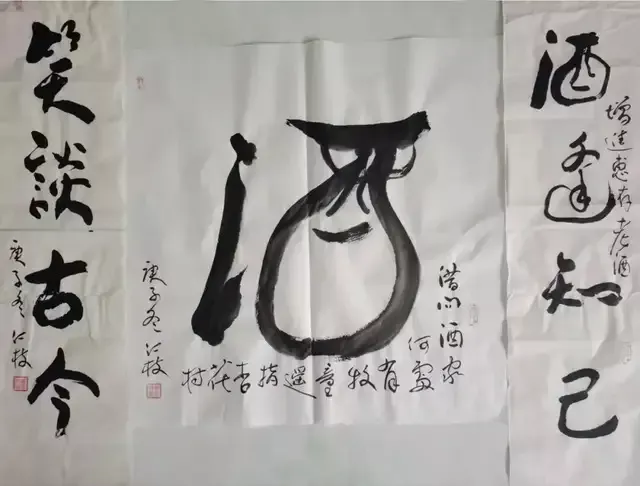 酒逢知己
增进惠存老酒
酒
借问酒家
何
處有牧童遥指杏花村
庚子冬仁枝
笑談古今
庚子冬仁枝